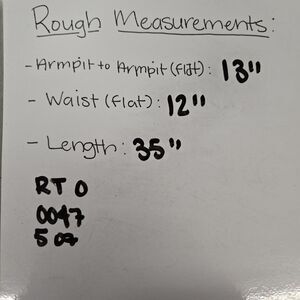 Rough Measurements:
- Armpit to Armpit (flat): 13"
- Waist (flat): 12"
- Length: 35"
RT 0
0047
5 oz